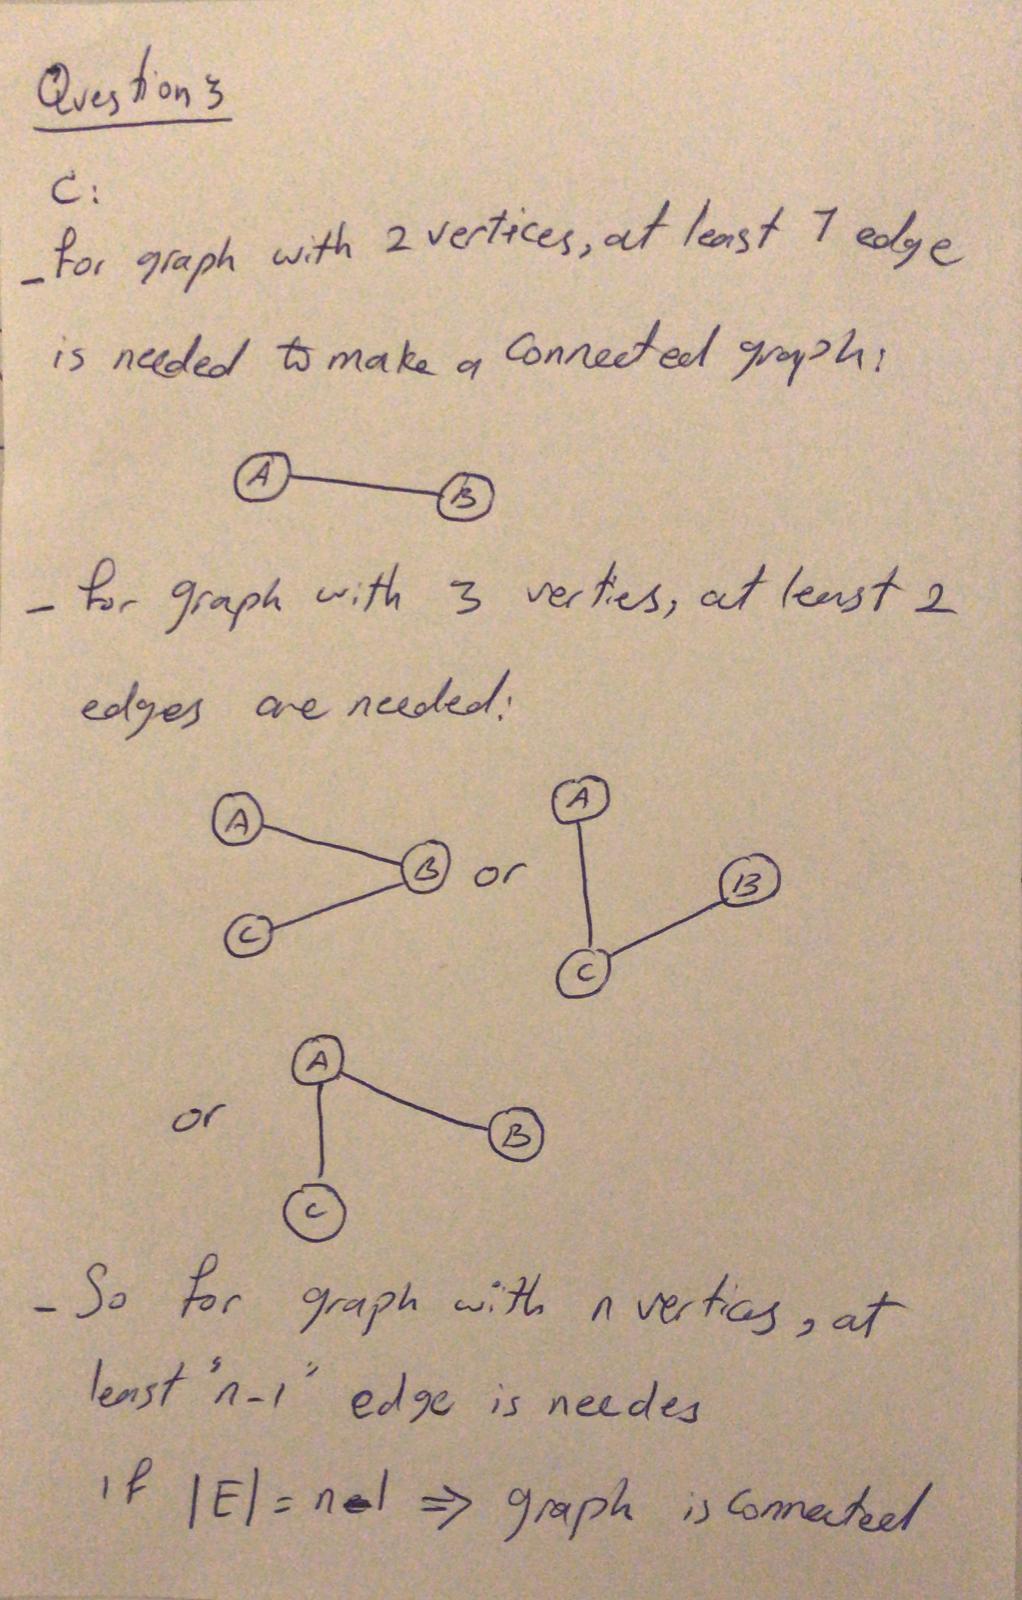 Question 3
C:
- for graph with 2 vertices, at least 1 edge
is needed to make a connected graph:
A B
- for graph with 3 verties, at least 2
edges are needed:
A B C or A B C
or A B C
- So for graph with n vertices, at
least "n-1" edge is needes
if |E| = n-1 ⇒ graph is connected